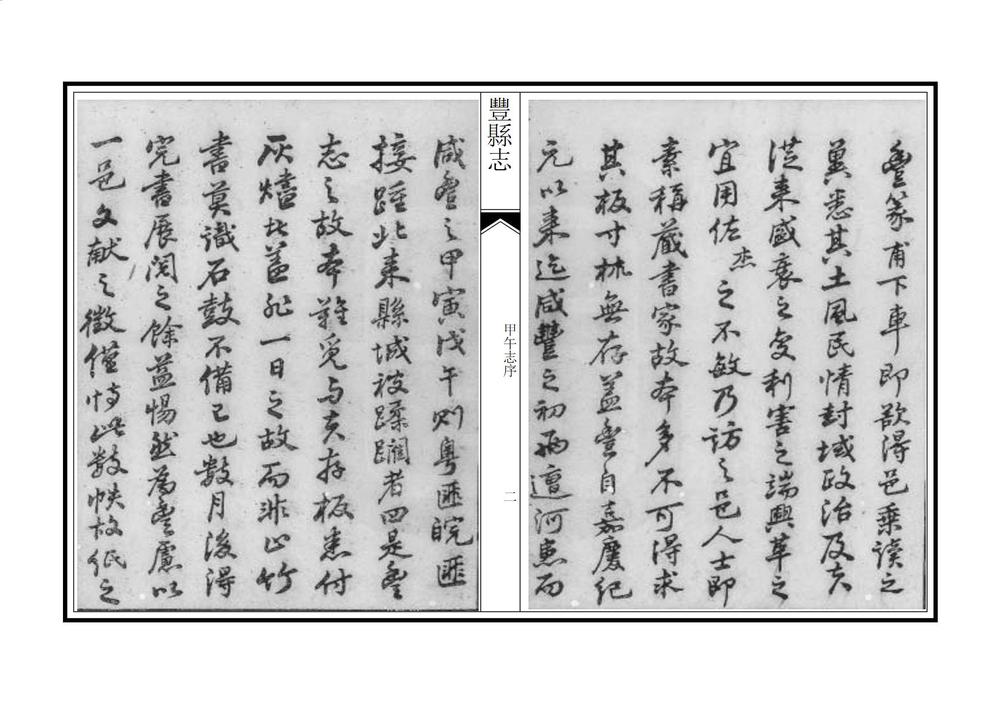 豐篆甫下車即欲得邑乘讀之
冀悉其土風民情封域政治及夫
從來盛衰之變利害之端興革之
宜用佐杰之不敏乃訪之邑人士即
素稱藏書家故本多不可得求
其板寸林無存蓋豐自嘉慶紀
元以來迄咸豐之初兩遭河患而
豐縣志
甲午志序
二
咸豐之甲寅戊午則粵匪皖匪
接踵北來縣城被蹂躪者四是豐
志之故本難覓与夫存板悉付
灰燼者蓋非一日之故而非止竹
書莫識石鼓不備已也數月後得
完書展閱之餘益惕然為豐慮以
一邑文献之徵僅恃此數帙故紙之